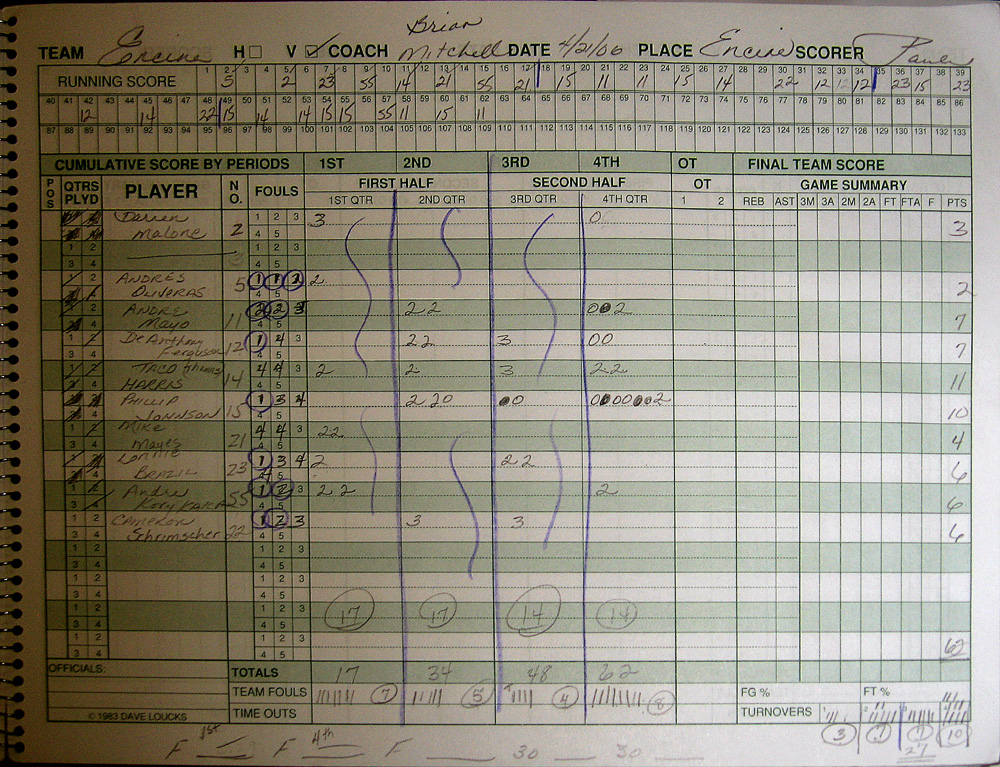 Brian
TEAM Encine H V COACH Mitchell DATE 4/21/06 PLACE Encine SCORER
RUNNING SCORE 1 2 3 4 5 6 7 8 9 10 11 12 13 14 15 16 17 18 19 20 21 22 23 24 25 26 27 28 29 30 31 32 33 34 35 36 37 38 39
5 2 23 55 14 21 55 21 15 11 11 15 14 22 12 12 12 23 15 23
40 41 42 43 44 45 46 47 48 49 50 51 52 53 54 55 56 57 58 59 60 61 62 63 64 65 66 67 68 69 70 71 72 73 74 75 76 77 78 79 80 81 82 83 84 85 86
12 14 22 15 14 14 15 15 55 11 15 11
87 88 89 90 91 92 93 94 95 96 97 98 99 100 101 102 103 104 105 106 107 108 109 110 111 112 113 114 115 116 117 118 119 120 121 122 123 124 125 126 127 128 129 130 131 132 133
CUMULATIVE SCORE BY PERIODS 1ST 2ND 3RD 4TH OT FINAL TEAM SCORE
POS QTRS PLYD PLAYER NO. FOULS FIRST HALF SECOND HALF OT GAME SUMMARY
1ST QTR 2ND QTR 3RD QTR 4TH QTR 1 2 REB AST 3M 3A 2M 2A FT FTA F PTS
Darren Malone 2 1 2 3 4 5 3 0 3
1 2 3 4 1 2 3 4 5
ANDRES OLIVERAS 5 2 2
ANDRE Mayo 11 2 2 2 7
DeAnthony Ferguson 12 2 2 3 0 0 7
TACO HARRIS 14 2 2 3 2 2 11
PHILLIP JOHNSON 15 2 2 0 10
Mike Mayes 21 2 2 4
Lonnie BRAZIL 23 2 2 2 6
Andre 55 2 2 2 6
Cameron Shrimscher 22 3 3 6
1 2 3 4 1 2 3 4 5
1 2 3 4 1 2 3 4 5
1 2 3 4 1 2 3 4 5 17 17 14 14
1 2 3 4 1 2 3 4 5 62
OFFICIALS: TOTALS 17 34 48 62
TEAM FOULS 7 5 4 8 FG % FT %
© 1983 DAVE LOUCKS TIME OUTS TURNOVERS
3 7 7 10
F 1st F 4th F 30 30 27